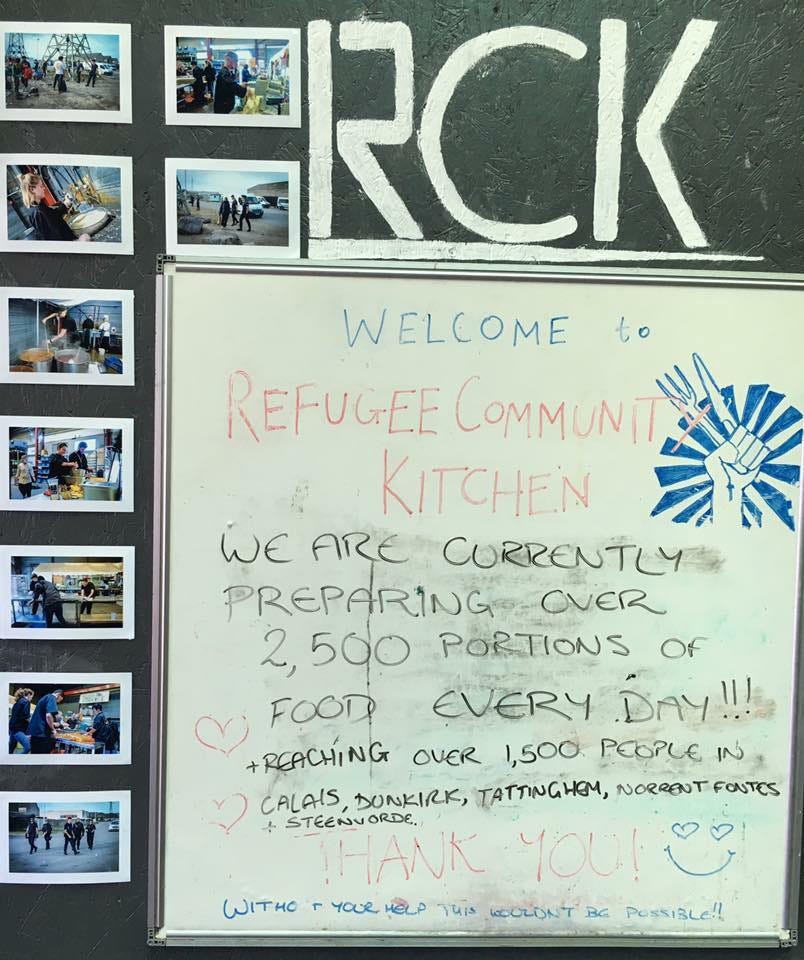 RCK
WELCOME to
REFUGEE COMMUNITY
KITCHEN
WE ARE CURRENTLY
PREPARING OVER
2,500 PORTIONS OF
FOOD EVERY DAY!!!
+REACHING OVER 1,500 PEOPLE IN
CALAIS, DUNKIRK, TATTINGHEM, NORRENT FONTES
+ STEENVORDE.
THANK YOU!
WITHO T YOUR HELP THIS WOULDN'T BE POSSIBLE!!